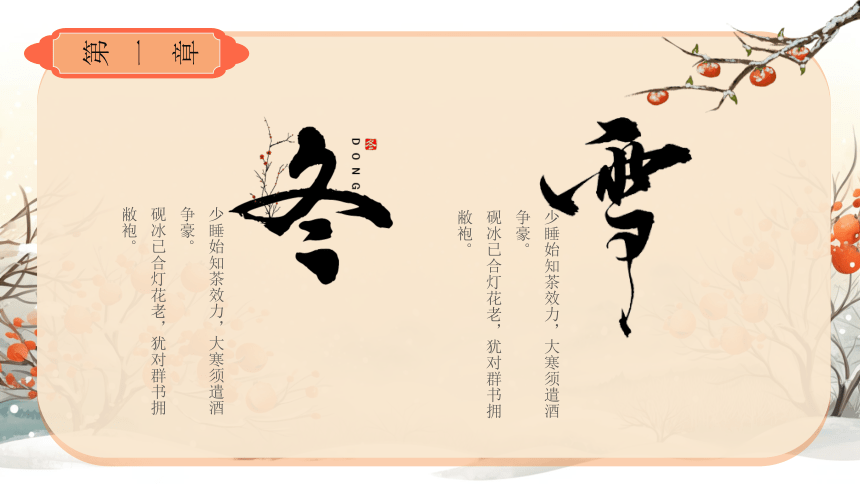 第一章
雪
少睡始知茶效力，大寒须遣酒
争豪。
砚冰已合灯花老，犹对群书拥
敝袍。
冬
DONG
冬
少睡始知茶效力，大寒须遣酒
争豪。
砚冰已合灯花老，犹对群书拥
敝袍。